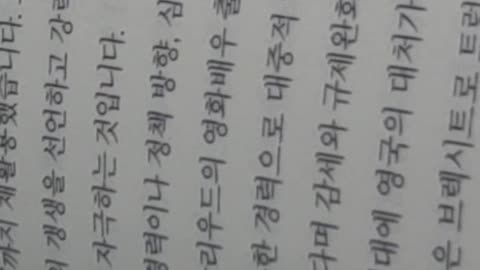 까지 재활용했습니다.
의 갱생을 선언하고
자극하는 것입니다.
정책 방향, 심
리우드의 영화배우 출
한 경력으로 대중적
다며 감세와 규제완화
대에 영국의 대처가
은 브렉시트로